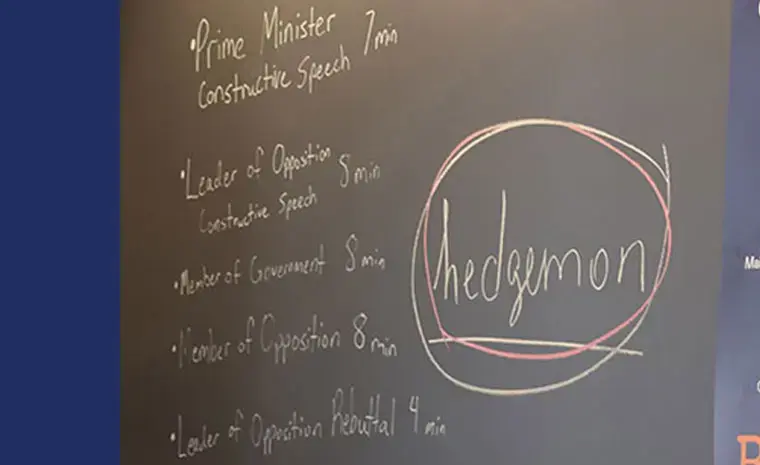 •Prime Minister 7 min
Constructive Speech
•Leader of Opposition 8 min
Constructive Speech
•Member of Government 8 min
•Member of Opposition 8 min
•Leader of Opposition Rebuttal 4 min
hedgemon